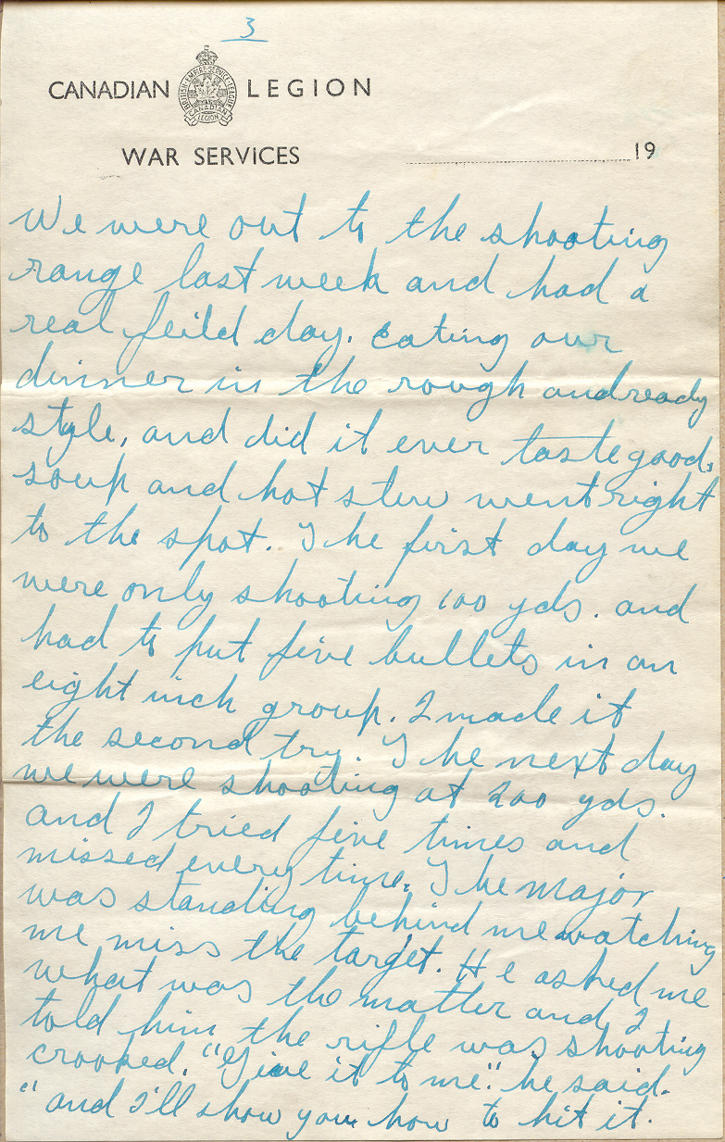 3
CANADIAN LEGION
BRITISH EMPIRE SERVICE LEAGUE
CANADIAN
LEGION
WAR SERVICES 19
We were out to the shooting
range last week and had a
real feild day. Eating our
dinner in the rough and ready
style, and did it ever taste good,
soup and hot stew went right
to the spot. The first day we
were only shooting 100 yds. and
had to put five bullets in an
eight inch group. I made it
the second try. The next day
we were shooting at 200 yds.
and I tried five times and
missed every time. The Major
was standing behind me watching
me miss the target. He asked me
what was the matter and I
told him the rifle was shooting
crooked. "Give it to me." he said.
"and I'll show you how to hit it.